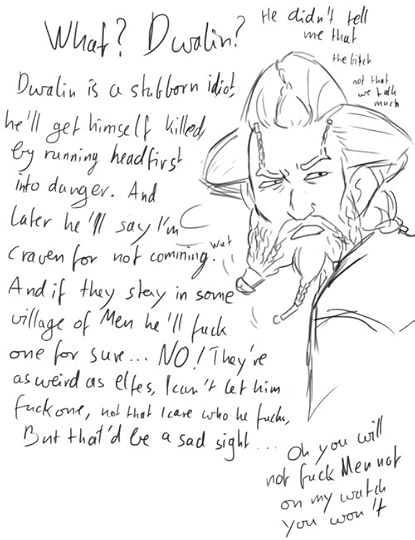 What? Dwalin?
He didn't tell
me that
the bitch
not that
we talk
much
Dwalin is a stubborn idiot,
he'll get himself killed
by running headfirst
into danger. And
later he'll say I'm
craven for not comming.
wut
And if they stay in some
village of Men he'll fuck
one for sure... NO! They're
as weird as elfes, I can't let him
fuck one, not that I care who he fucks,
But that'd be a sad sight...
Oh you will
not fuck Men not
on my watch
you won't